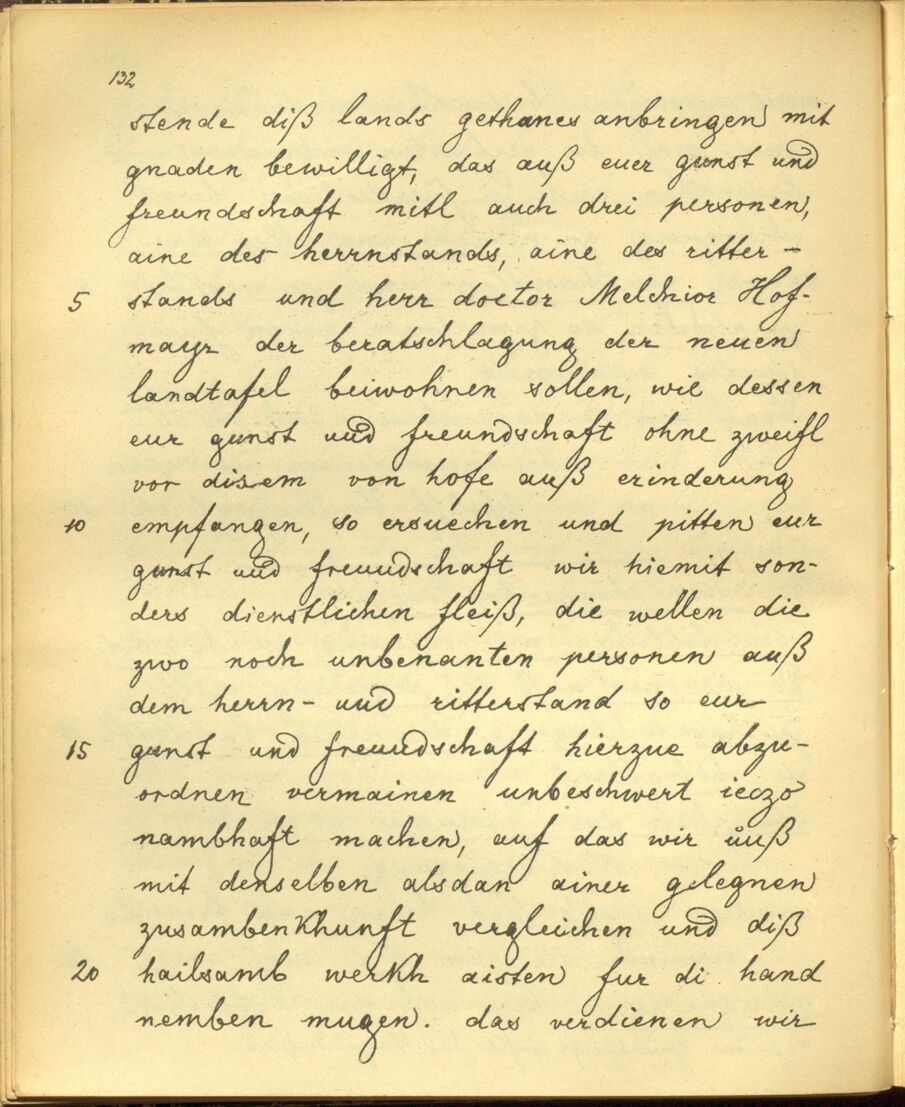 132
stende diß lands gethanes anbringen mit
gnaden bewilligt, das auß euer gunst und
freundschaft mitl auch drei personen,
aine des herrnstands, aine des ritter-
5 stands und herr doctor Melchior Hof-
mayr der beratschlagung der neuen
landtafel beiwohnen sollen, wie dessen
eur gunst und freundschaft ohne zweifl
vor disem von hofe auß erinderung
10 empfangen, so ersuechen und pitten eur
gunst und freundschaft wir hiemit son-
ders dienstlichen fleiß, die wellen die
zwo noch unbenanten personen auß
dem herrn- und ritterstand so eur
15 gunst und freundschaft hierzue abzu-
ordnen vermainen unbeschwert ieczo
nambhaft machen, auf das wir ůuß
mit denselben alsdan ainer gelegnen
zusambenkhunft vergleichen und diß
20 hailsamb werkh aisten fur di hand
nemben mugen. das verdienen wir